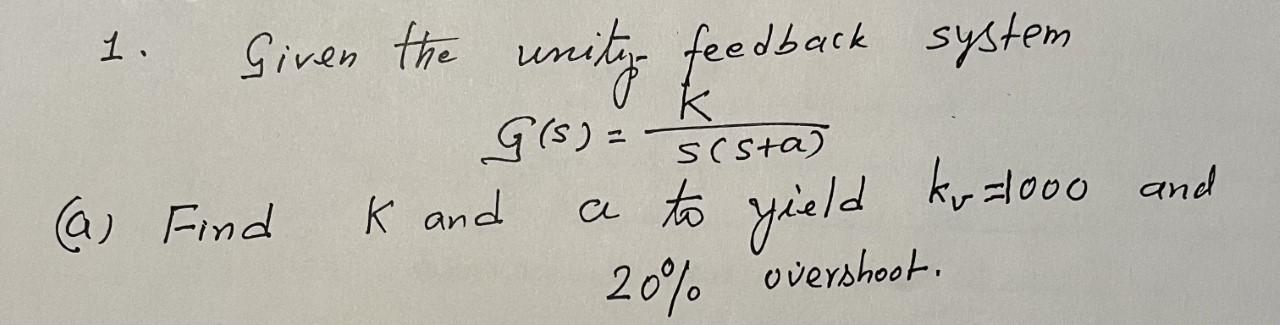 1. Given the unity feedback system
G(s) = K / s(s+a)
(a) Find K and a to yield kv=1000 and
20% overshoot.